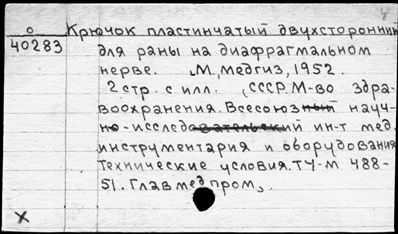 о Крючок пластинчатый двухсторонний
40283 для раны на диафрагмальном
нерве. М, Медгиз, 1952.
2 стр. с илл. (СССР. М-во здра-
воохранения. Всесоюзный науч-
но-исследовательский ин-т мед.
инструментария и оборудования
Технические условия. ТУ-М 488-
51. Главмедпром).
х